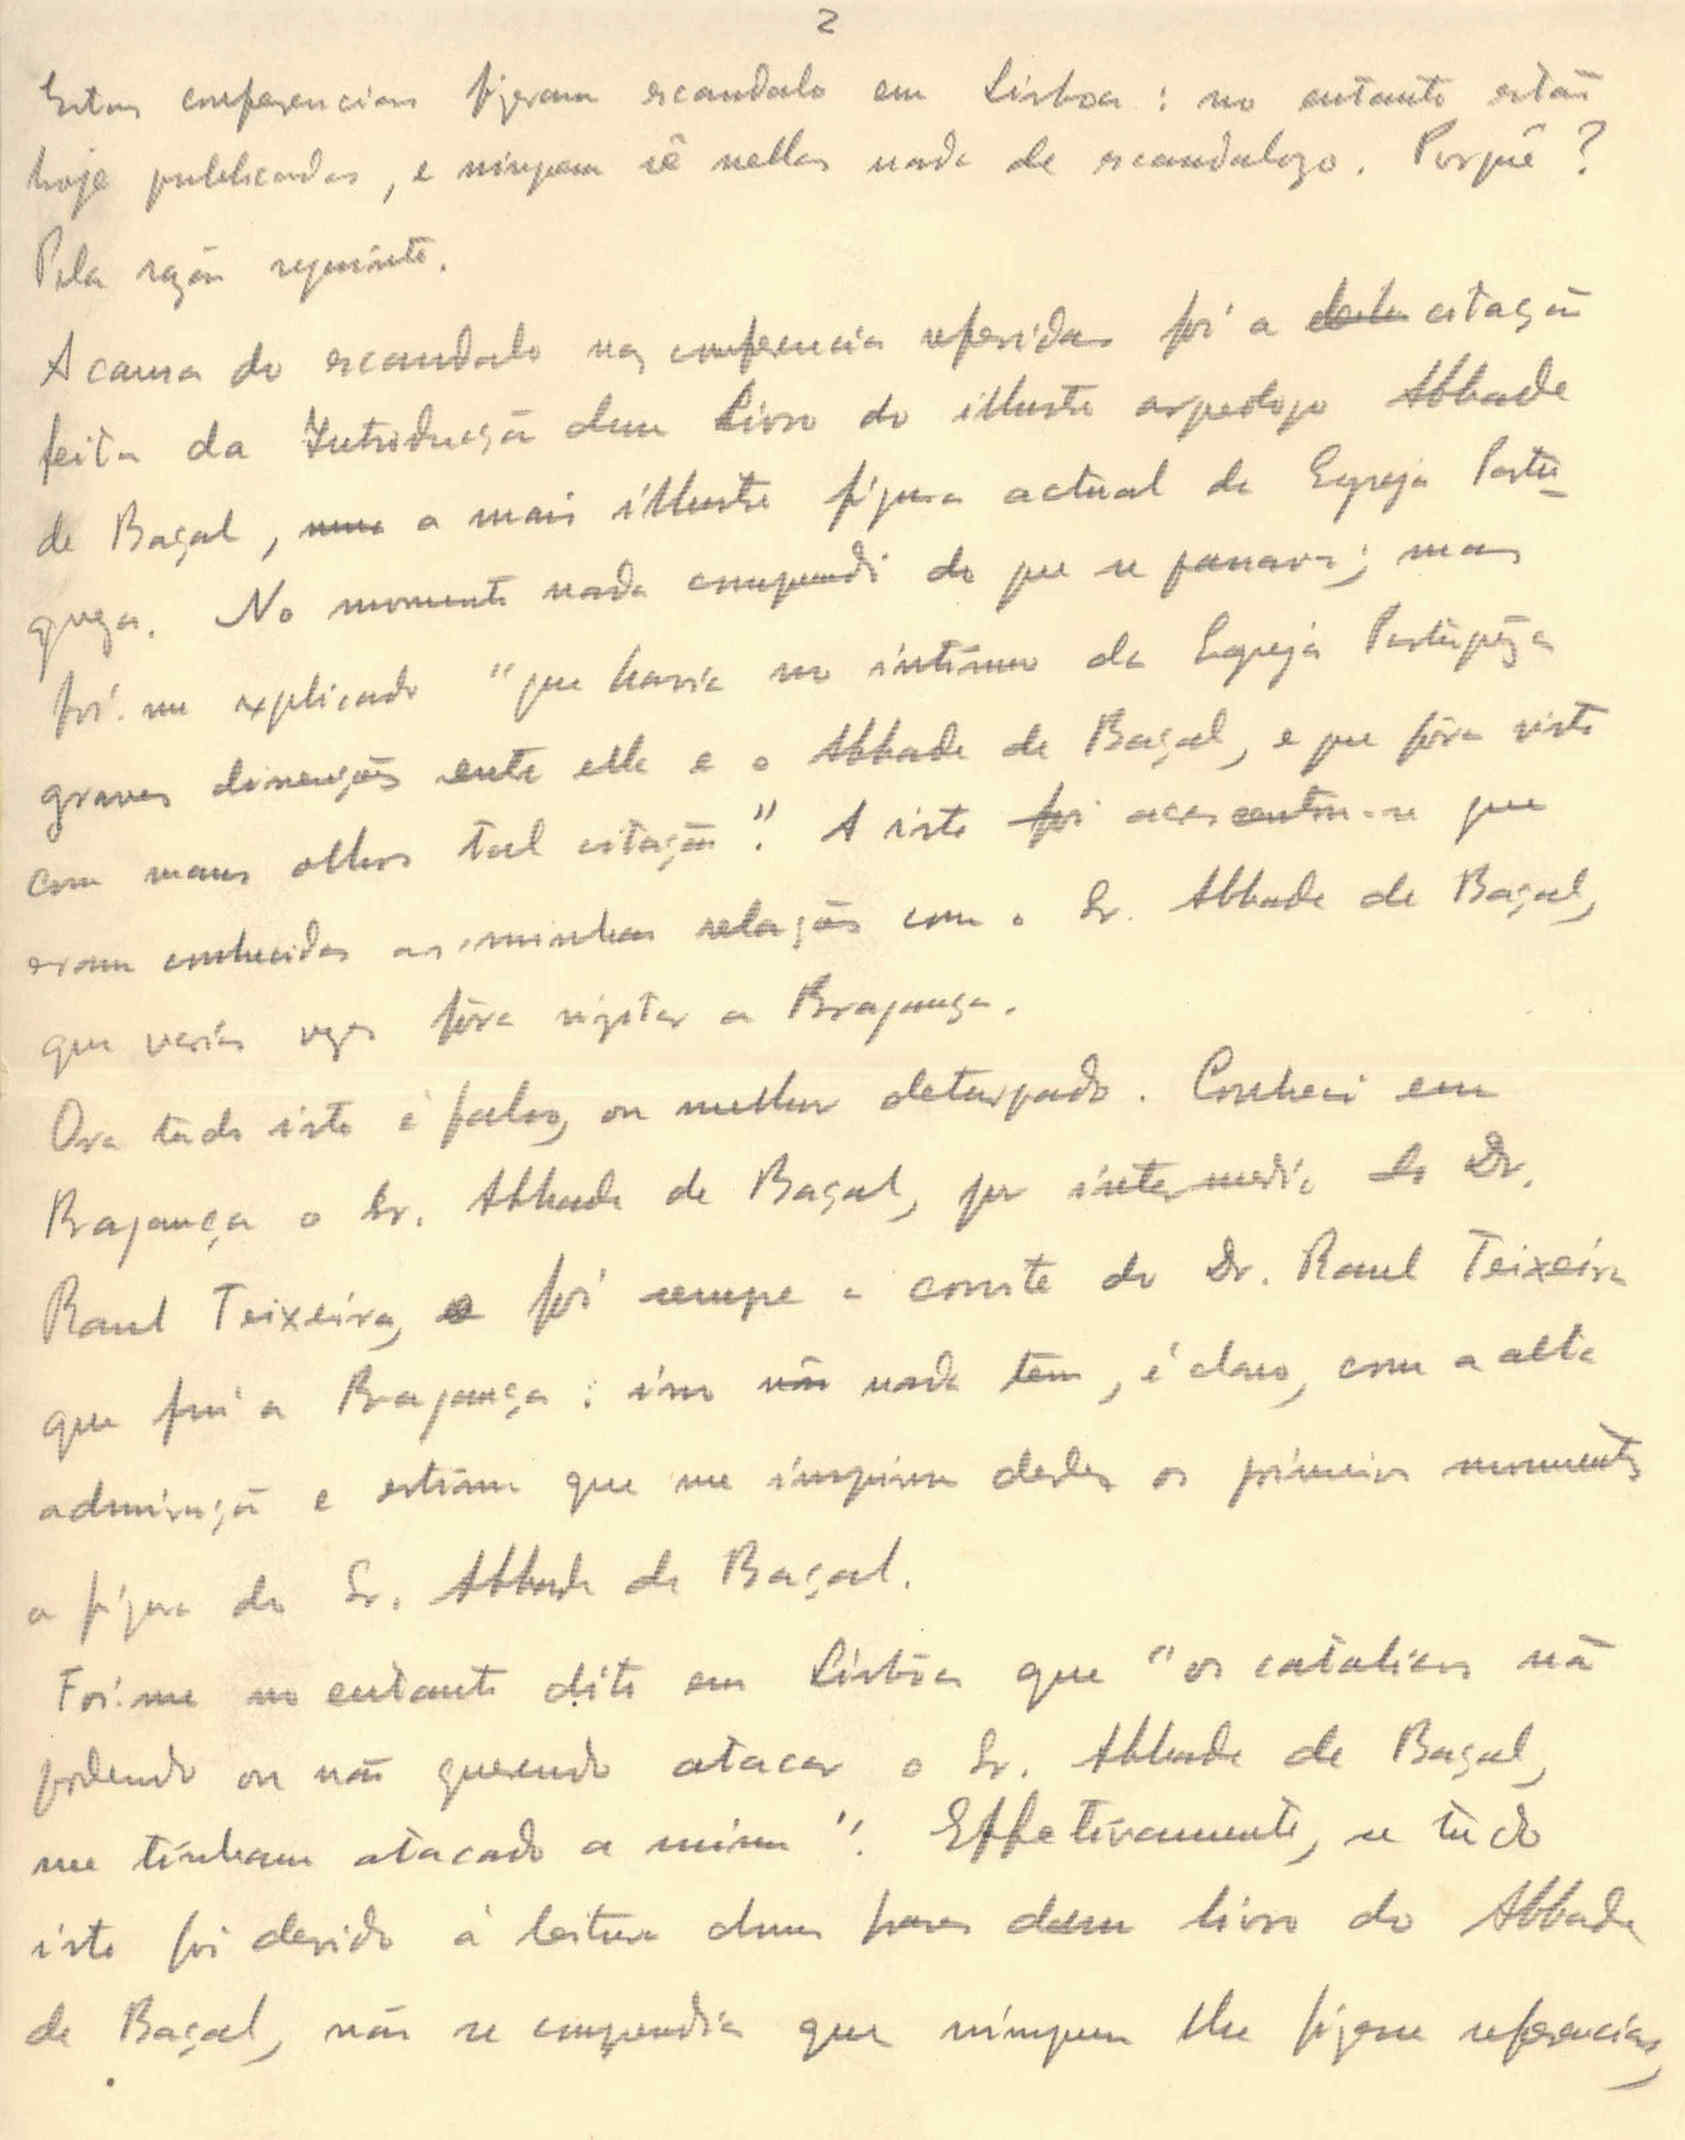 2
Estas conferencias fizeram escandalo em Lisboa : no entanto estão
hoje publicadas, e ninguem vê nellas nada de escandalozo. Porquê ?
Pela razão seguinte.
A causa do escandalo nas conferencias referidas foi a citação
feita da Introdução dum Livro do illustre arqeologo Abbade
de Baçal, a mais illustre figura actual da Egreja Portu-
gueza. No momento nada comprendi do que se passava; mas
foi-me explicado "que havia no intimo da Egreja Portugêza
graves dissenções entre ella e o Abbade de Baçal, e que fôra visto
com maus olhos tal citação". A isto acrescentou-se que
eram conhecidas as minhas relações com o Sr. Abbade de Baçal,
que varias vezes fôra vizitar a Bragança.
Ora tudo isto é falso, ou melhor deturpado. Conheci em
Bragança o Sr. Abbade de Baçal, por intermedio do Dr.
Raul Teixeira, e foi sempre a convite do Dr. Raul Teixeira
que fui a Bragança : isso nada tem, é claro, com a alta
admiração e estima que me inspirou desde os primeiros momentos
a figura do Sr. Abbade de Baçal.
Foi-me no entanto dito em Lisbôa que "os catolicos não
podendo ou não querendo atacar o Sr. Abbade de Baçal,
me tinham atacado a mim". Effetivamente, se tudo
isto foi devido á leitura dumas frases dum livro do Abbade
de Baçal, não se comprendia que ninguem lhe fizesse referencias,